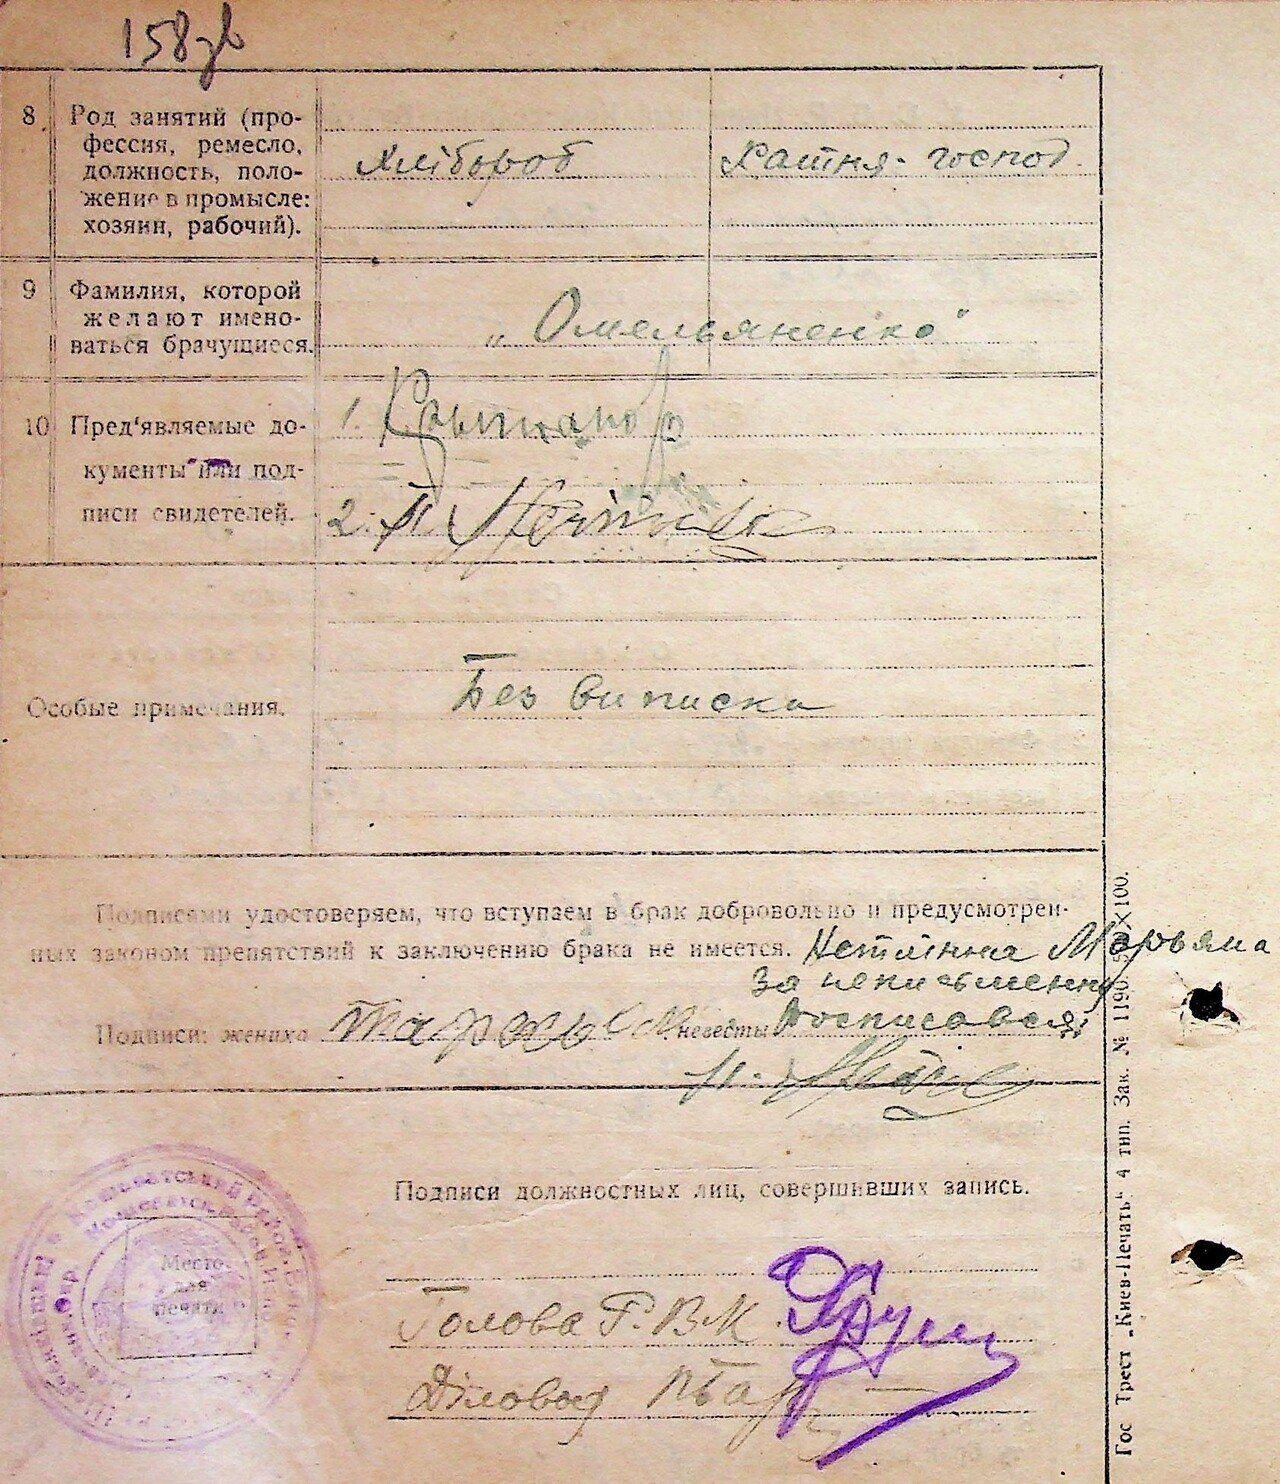 158зв
8 Род занятий (про-
фессия, ремесло,
должность, поло-
жение в промысле:
хозяин, рабочий).
Хлібороб
Хатня-господ.
9 Фамилия, которой
желают имено-
ваться брачущиеся.
„Омельяненко“
10 Пред'являемые до-
кументы или под-
писи свидетелей.
1.
2. П.
Особые примечания.
Без виписки
Подписями удостоверяем, что вступаем в брак добровольно и предусмотрен-
ных законом препятствий к заключению брака не имеется.
Марьяна
за неписьменну
Подписи: жениха
невесты
Росписався:
Подписи должностных лиц, совершивших запись.
Место
для
печати
Голова Р.В.К.
Діловод
Гос Трест „Киев-Печать“ 4 тип. Зак. № 1190